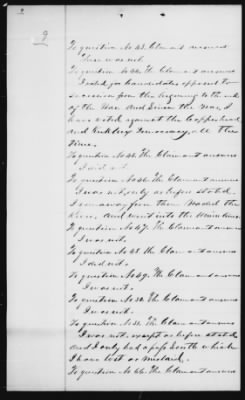 2
To question No 43. Claimant answers
There was not.
To question No 44. The Claimant answers
I voted for Candidates opposed to
secession from the beginning to the end
of the War. and Since the War, I
have voted against the Copperhead
and Kuklux Democracy, all the
time.
To question No 45. The Claimant answers
I did not.
To question No 46. The Claimant answers
I was not, only as before stated,
I ran away from them Waded the
River, and went into the Union lines
To question No 47. The Claimant answers
I was not.
To question No 48. The Claimant answers
I did not.
To question No 49. The Claimant answers
I was not.
To question No 50. The Claimant answers
I was not.
To question No 51. The Claimant answers
I was not, except as before stated
and I only had a pass South which
I have lost or mislaid.
To question No The Claimant answers